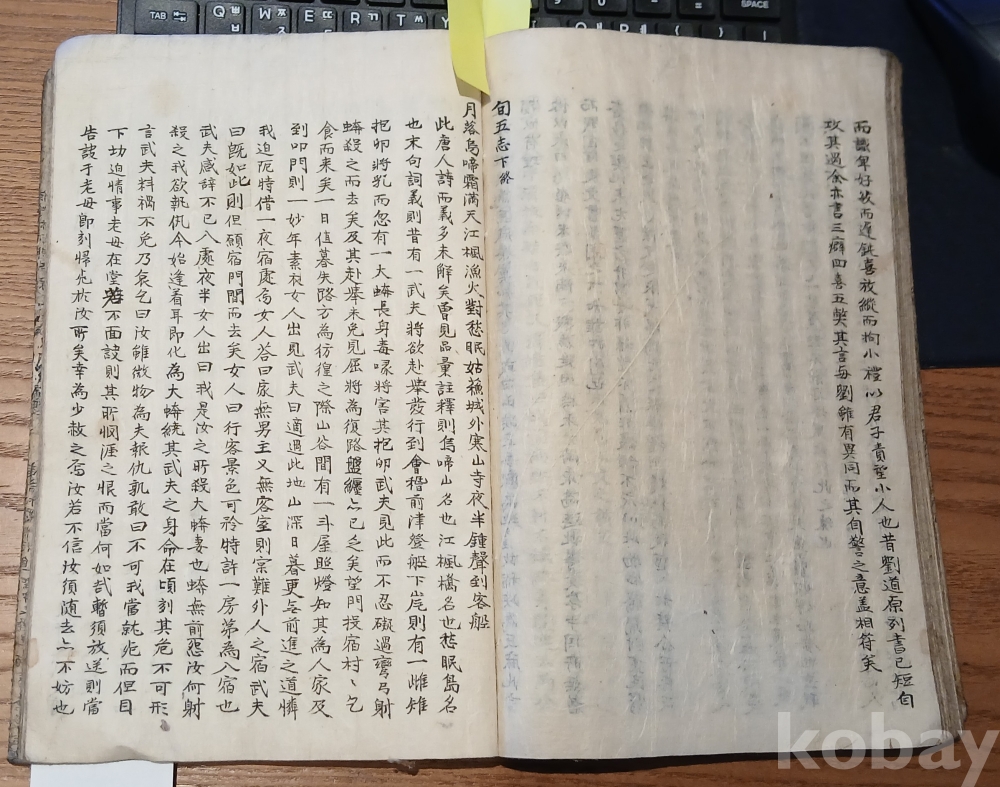 而識卑好放而遲鈍喜放縱而拘小禮以君子責望小人也昔劉道原列書已短自
攻其過余亦書三癖四喜五弊其言每劉雖有異同而其自警之意盖相符矣
旬五志下終
月落烏啼霜滿天江楓漁火對愁眠姑蘓城外寒山寺夜半鍾聲到客船
此唐人詩而義多未解矣曽見品彙註釋則烏啼山名也江楓橋名也愁眠島名
也末句詞義則昔有一武夫將欲赴發行到會稽前津登船下岸則有一雌雉
抱卵將乳而忽有一大蟒長身毒喙將害其抱卵武夫見此而不忍礙過彎弓射
蟒殺之而去矣及其赴擧未免見屈將為復路盤纏亦已乏矣望門投宿村乞
食而来矣一日值暮失路方為彷徨之際山谷間有一斗屋照燈知其為人家及
到叩門則一妙年素衣女人出見武夫曰適過此地山深日暮更無前進之道憐
我迫阨特借一夜宿處為女人答曰家無男主又無客室則宲難外人之宿武夫
曰旣如此則但願宿門間而去矣女人曰行客景色可矜特許一房第為入宿也
武夫感辞不已入處夜半女人出曰我是汝之所殺大蟒妻也蟒無前怨汝何射
殺之我欲執仇今始逢着耳即化為大蟒統其武夫之身命在頃刻其危不可形
言武夫料禍不免乃哀乞曰汝雖微物為夫報仇孰敢曰不可我當就死而但目
下切迫情事老母在堂若不面訣則其所悯涯之恨而當何如哉暫須放送則當
告訣于老母即刻歸死於汝所矣幸為少赦之焉汝若不信汝須随去亦不妨也
TAB
Q
W
E
R
T
SPACE
kobay